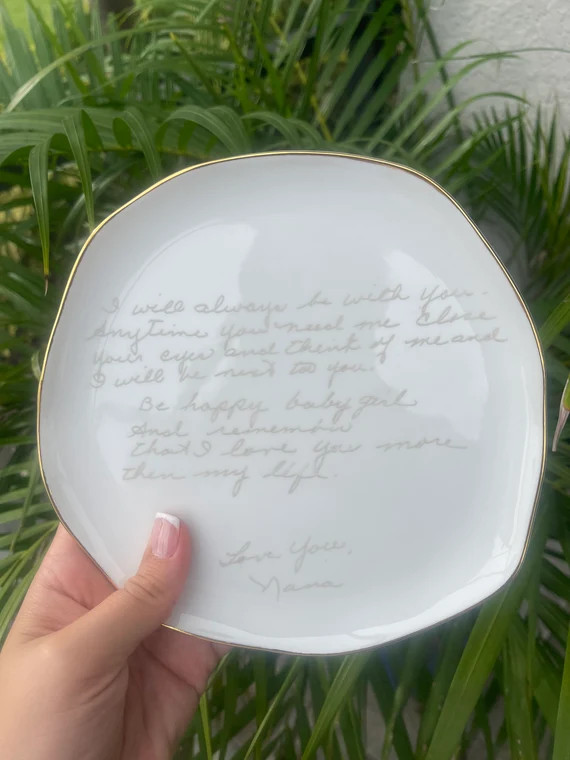 I will always be with you.
Anytime you need me close
your eyes and think of me and
I will be next to you.
Be happy baby girl
And remember
that I love you more
then my life.
Love You,
Nana